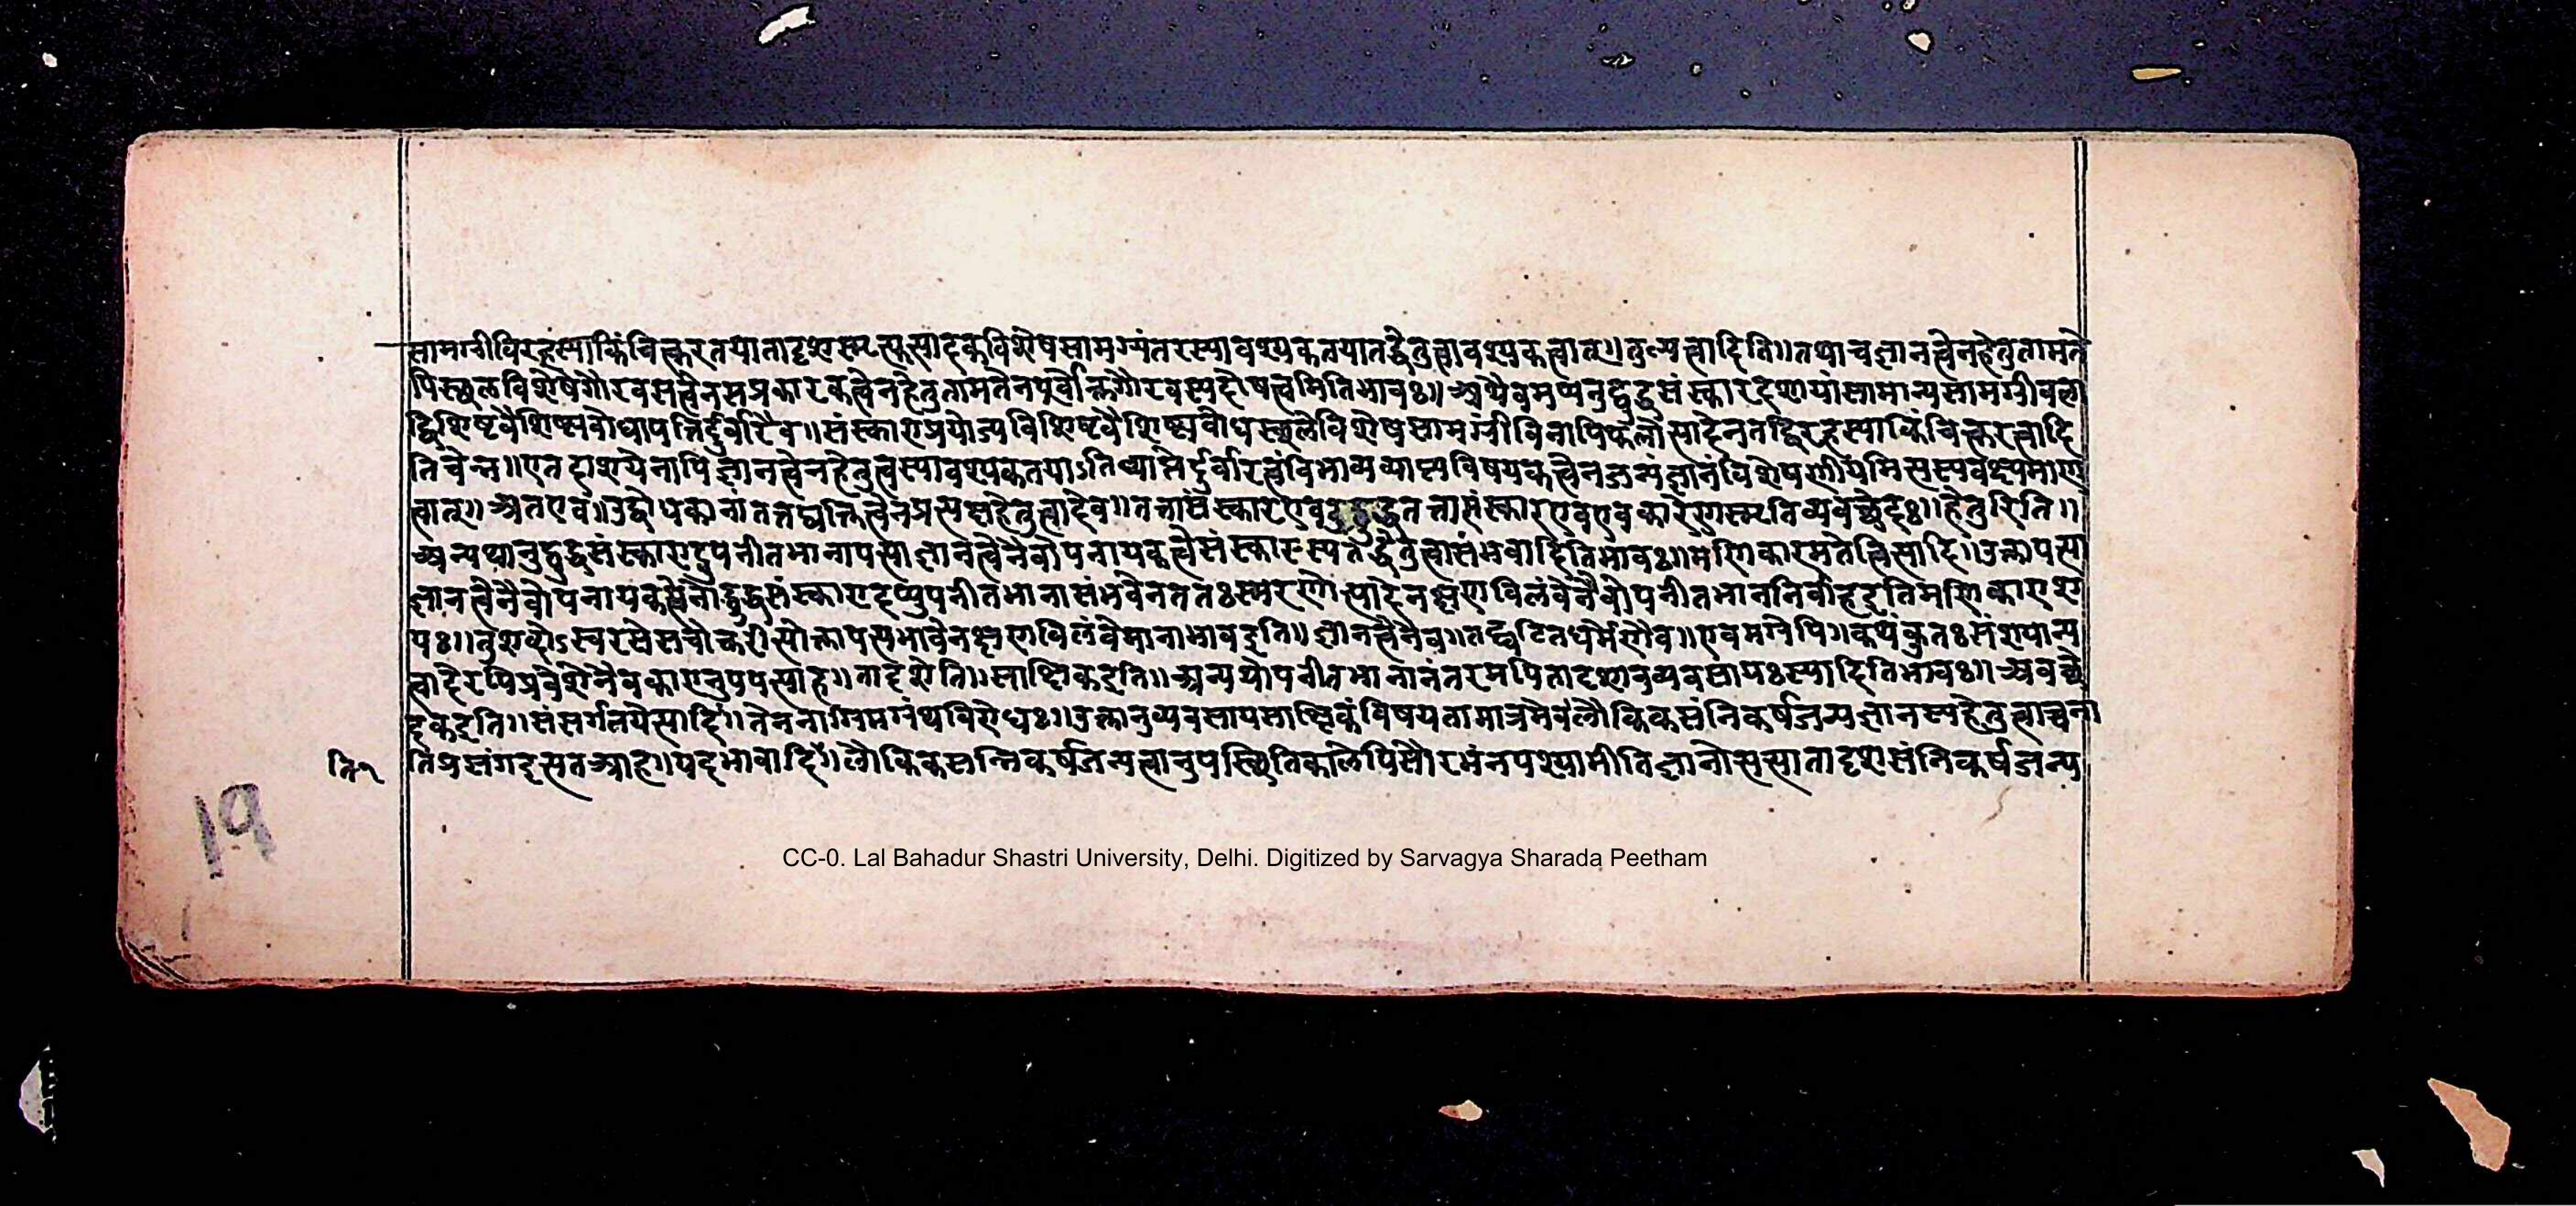 सामग्रीविरहस्याकिंचित्करतयातादृशस्मरत्युत्पादकविशेषसामग्र्यंतरस्यावश्यकतयातद्धेतुत्वावश्यकत्वात्॥तुल्यत्वादिति॥तथाचज्ञानत्वेनहेतुतामते
पिस्थलविशेषेगौरवसत्वेनसप्रकारकत्वेनहेतुतामतेनपूर्वोक्तगौरवस्यदोषत्वमितिभावः॥अथैवमप्यनुद्बुद्धसंस्कारदशायांसामान्यसामग्रीबला
द्विशिष्टवैशिष्ट्यबोधापत्तिर्दुर्वारैव॥संस्काराप्रयोज्यविशिष्टवैशिष्ट्यबोधस्थलेविशेषसामग्रीविनापिफलोत्पादेनतद्विरहस्याकिंचित्करत्वादि
तिचेन्न॥एतदाशयेनापिज्ञानत्वेनहेतुत्वस्यावश्यकतयाऽतिव्याप्तेर्दुर्वारत्वंविभाव्यव्याप्यविषयकत्वेनजन्यंज्ञानंविशेषणीयमित्यस्यवक्ष्यमाण
त्वात्॥अतएव॥उद्बोधकानांतत्तद्व्यक्तित्वेनप्रत्यक्षहेतुत्वादेव॥तत्तासंस्कारएव उद्बुद्धतत्तासंस्कारएवएवकारेणस्मृतिव्यवच्छेदः॥हेतुरिति॥
अन्यथानुद्बुद्धसंस्कारादुपनीतभानापत्त्याज्ञानत्वेनैवोपनायकत्वेसंस्कारस्यतद्धेतुत्वासंभवादितिभावः॥मणिकारमतेत्वित्यादि॥उक्तापत्त्या
ज्ञानत्वेनैवोपनायकत्वेनोद्बुद्धसंस्कारादप्युपनीतभानासंभवेनततःस्मरणोत्पादेनक्षणविलंबेनैवोपनीतभाननिर्वाहइतिमणिकाराश
यः॥तुशब्दोऽस्वरसेसचोक्तरीत्योक्तापत्त्यभावेनक्षणविलंबेमानाभावइति॥ज्ञानत्वेनैव॥तद्घटितधर्मेणैव॥एवमग्रेपि॥कथंकुतःसंशयान्य
त्वादेरपिप्रवेशेनैवकारानुपपत्त्याह॥तादृशेति॥साक्षिकइति॥अन्यथोपनीतभानानंतरमपितादृशानुव्यवसायःस्यादितिभावः॥अवच्छे
दकइति॥संसर्गतयेत्यादिः॥तेननाग्रिमग्रंथविरोधः॥उक्तानुव्यवसायसाक्षिकंविषयतामात्रमेवलौकिकसंनिकर्षजन्यज्ञानस्यहेतुत्वाच्चना
तिप्रसंगइत्यतआह॥यदभावादिः॥लौकिकसन्निकर्षजन्यत्वानुपस्थितिकालेपिसौरभंनपश्यामीतिज्ञानोत्पत्त्यातादृशसंनिकर्षजन्य
ति॰१
19
CC-0. Lal Bahadur Shastri University, Delhi. Digitized by Sarvagya Sharada Peetham